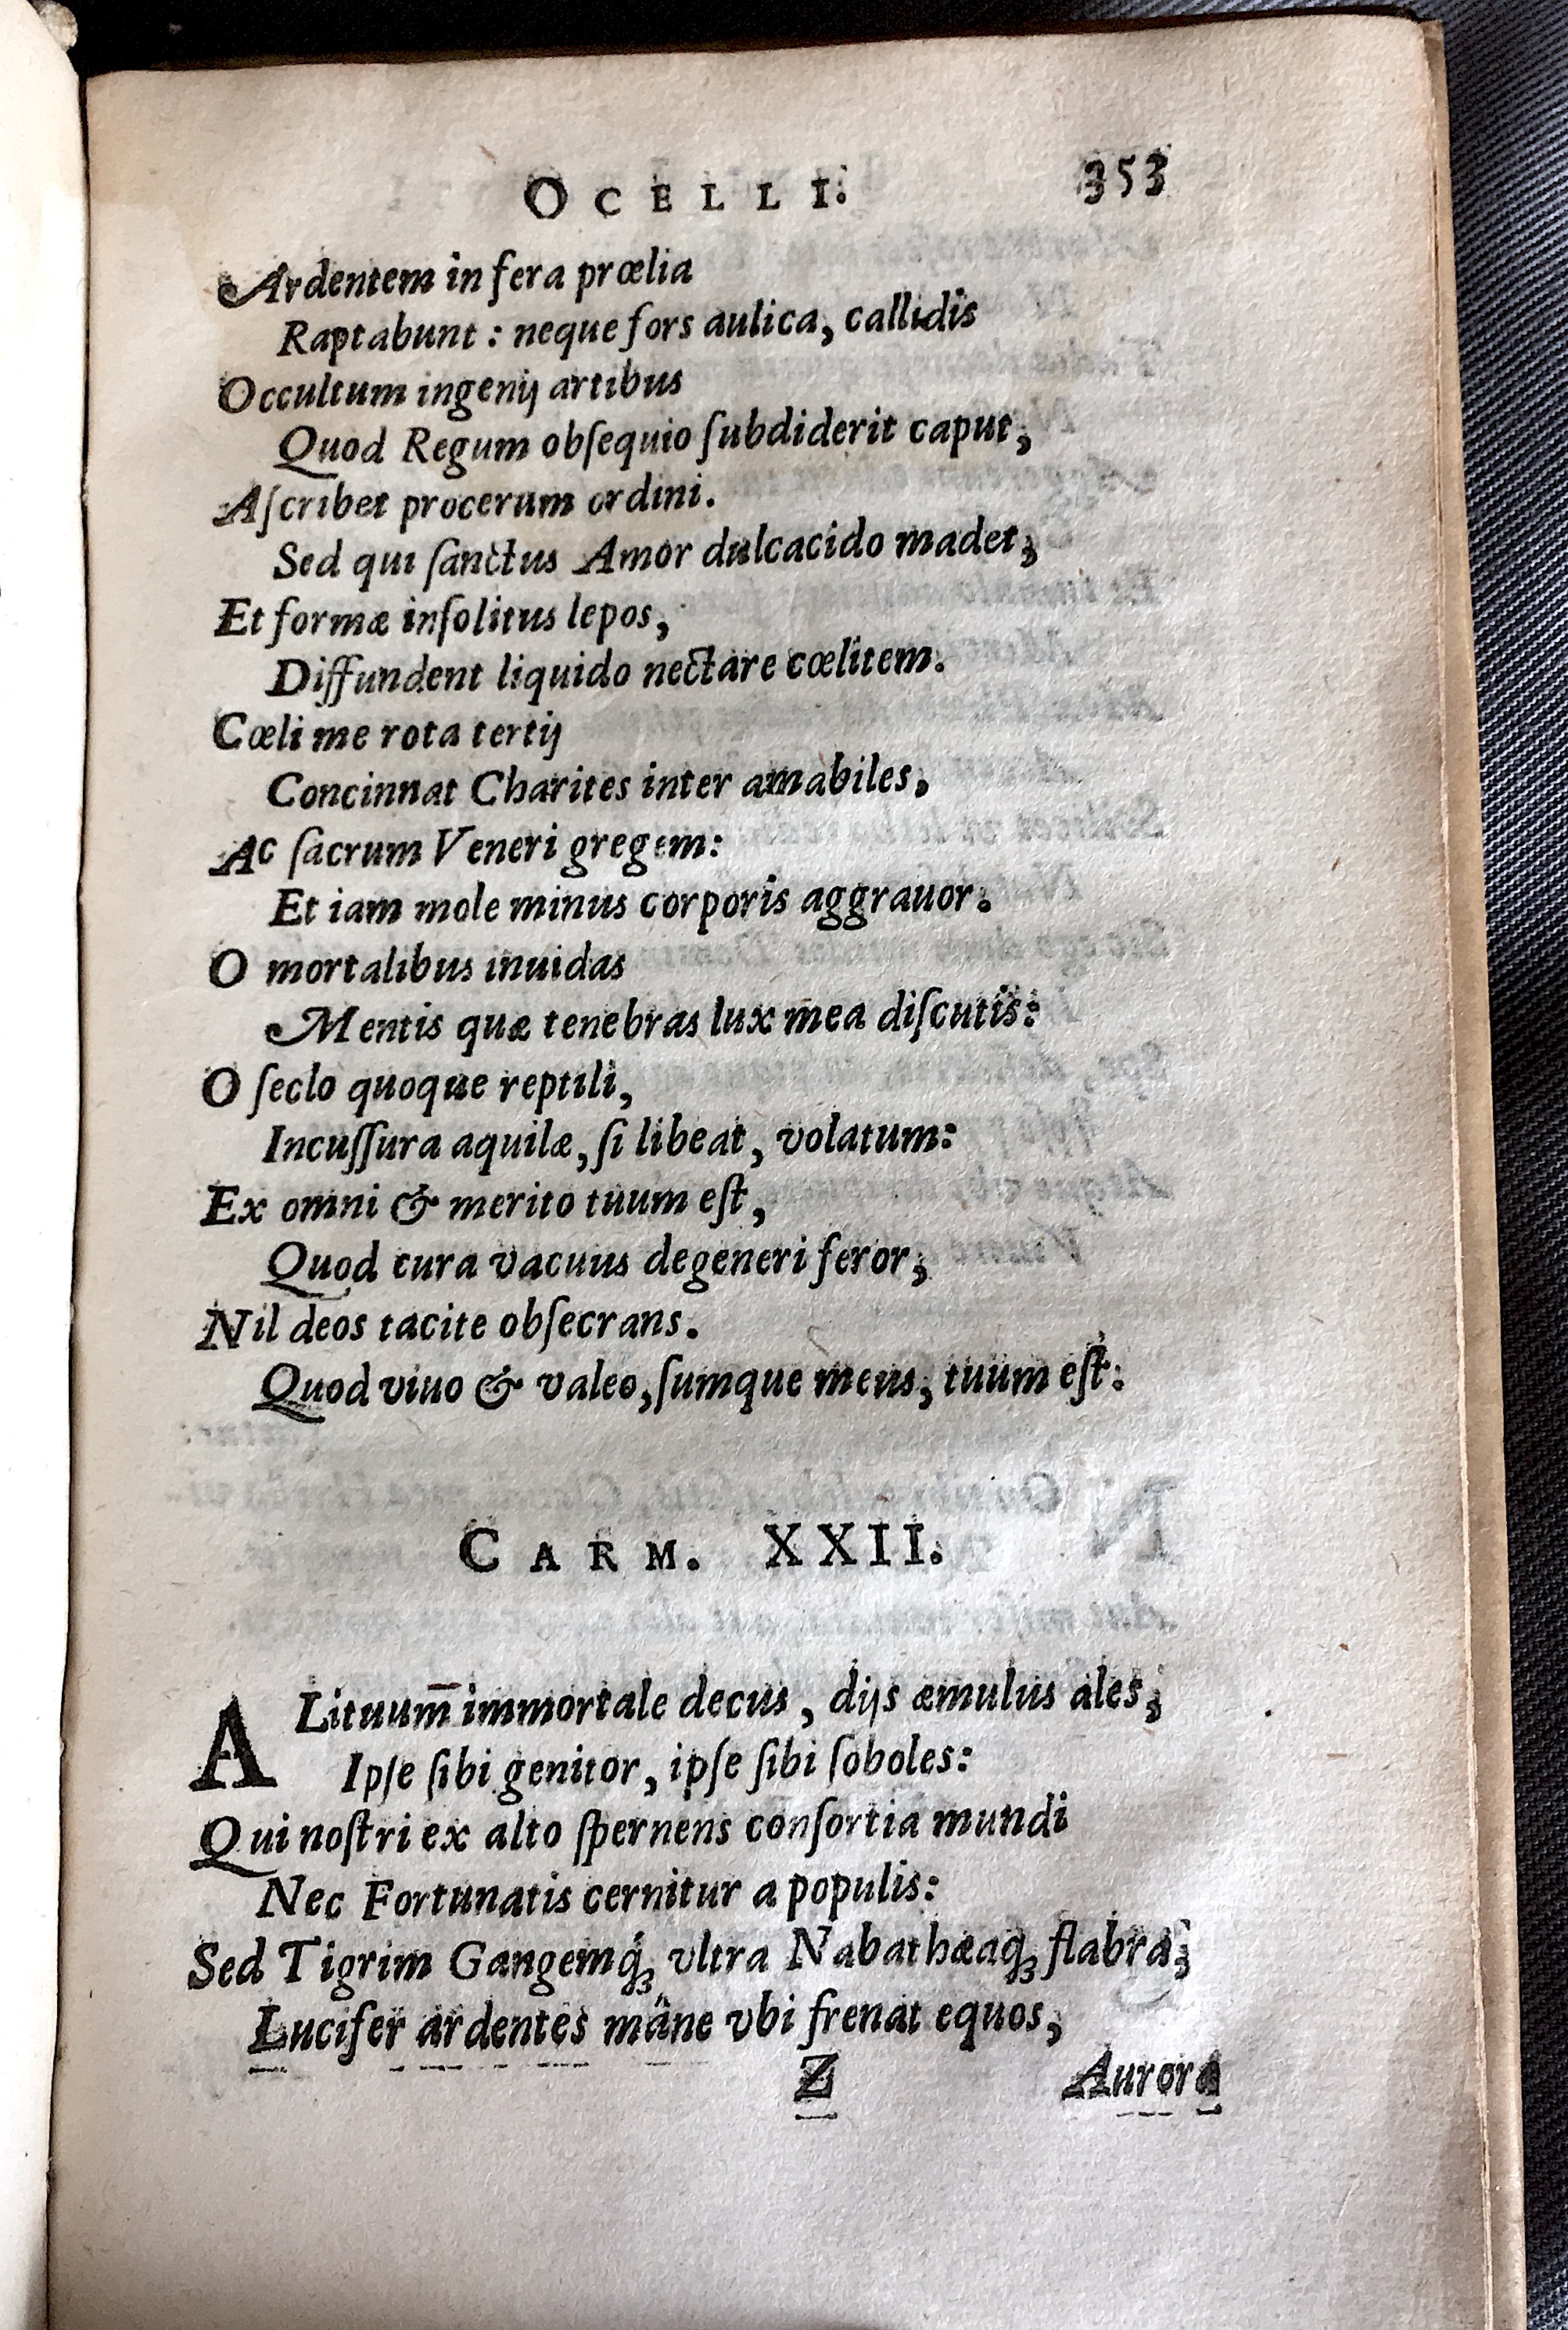 OCELLI. 353
Ardentem in fera prœlia
Raptabunt : neque fors aulica, callidis
Occultum ingenij artibus
Quod Regum obſequio ſubdiderit caput,
Aſcribet procerum ordini.
Sed qui ſanctus Amor dulcacido madet;
Et formæ inſolitus lepos,
Diffundent liquido nectare cœlitem.
Cœli me rota tertij
Concinnat Charites inter amabiles,
Ac ſacrum Veneri gregem:
Et iam mole minus corporis aggrauor.
O mortalibus inuidas
Mentis quæ tenebras lux mea diſcutis:
O ſeclo quoque reptili,
Incuſſura aquilæ, ſi libeat, volatum:
Ex omni & merito tuum eſt,
Quod cura vacuus degeneri feror;
Nil deos tacite obſecrans.
Quod viuo & valeo, ſumque meus, tuum eſt:
CARM. XXII.
ALituum̅ immortale decus, dijs æmulus ales;
Ipſe ſibi genitor, ipſe ſibi ſoboles:
Qui noſtri ex alto ſpernens conſortia mundi
Nec Fortunatis cernitur a populis:
Sed Tigrim Gangemq́ꝫ vltra Nabathæaqꝫ flabra;
Lucifer ardentes mâne vbi frenat equos,
Z Aurora